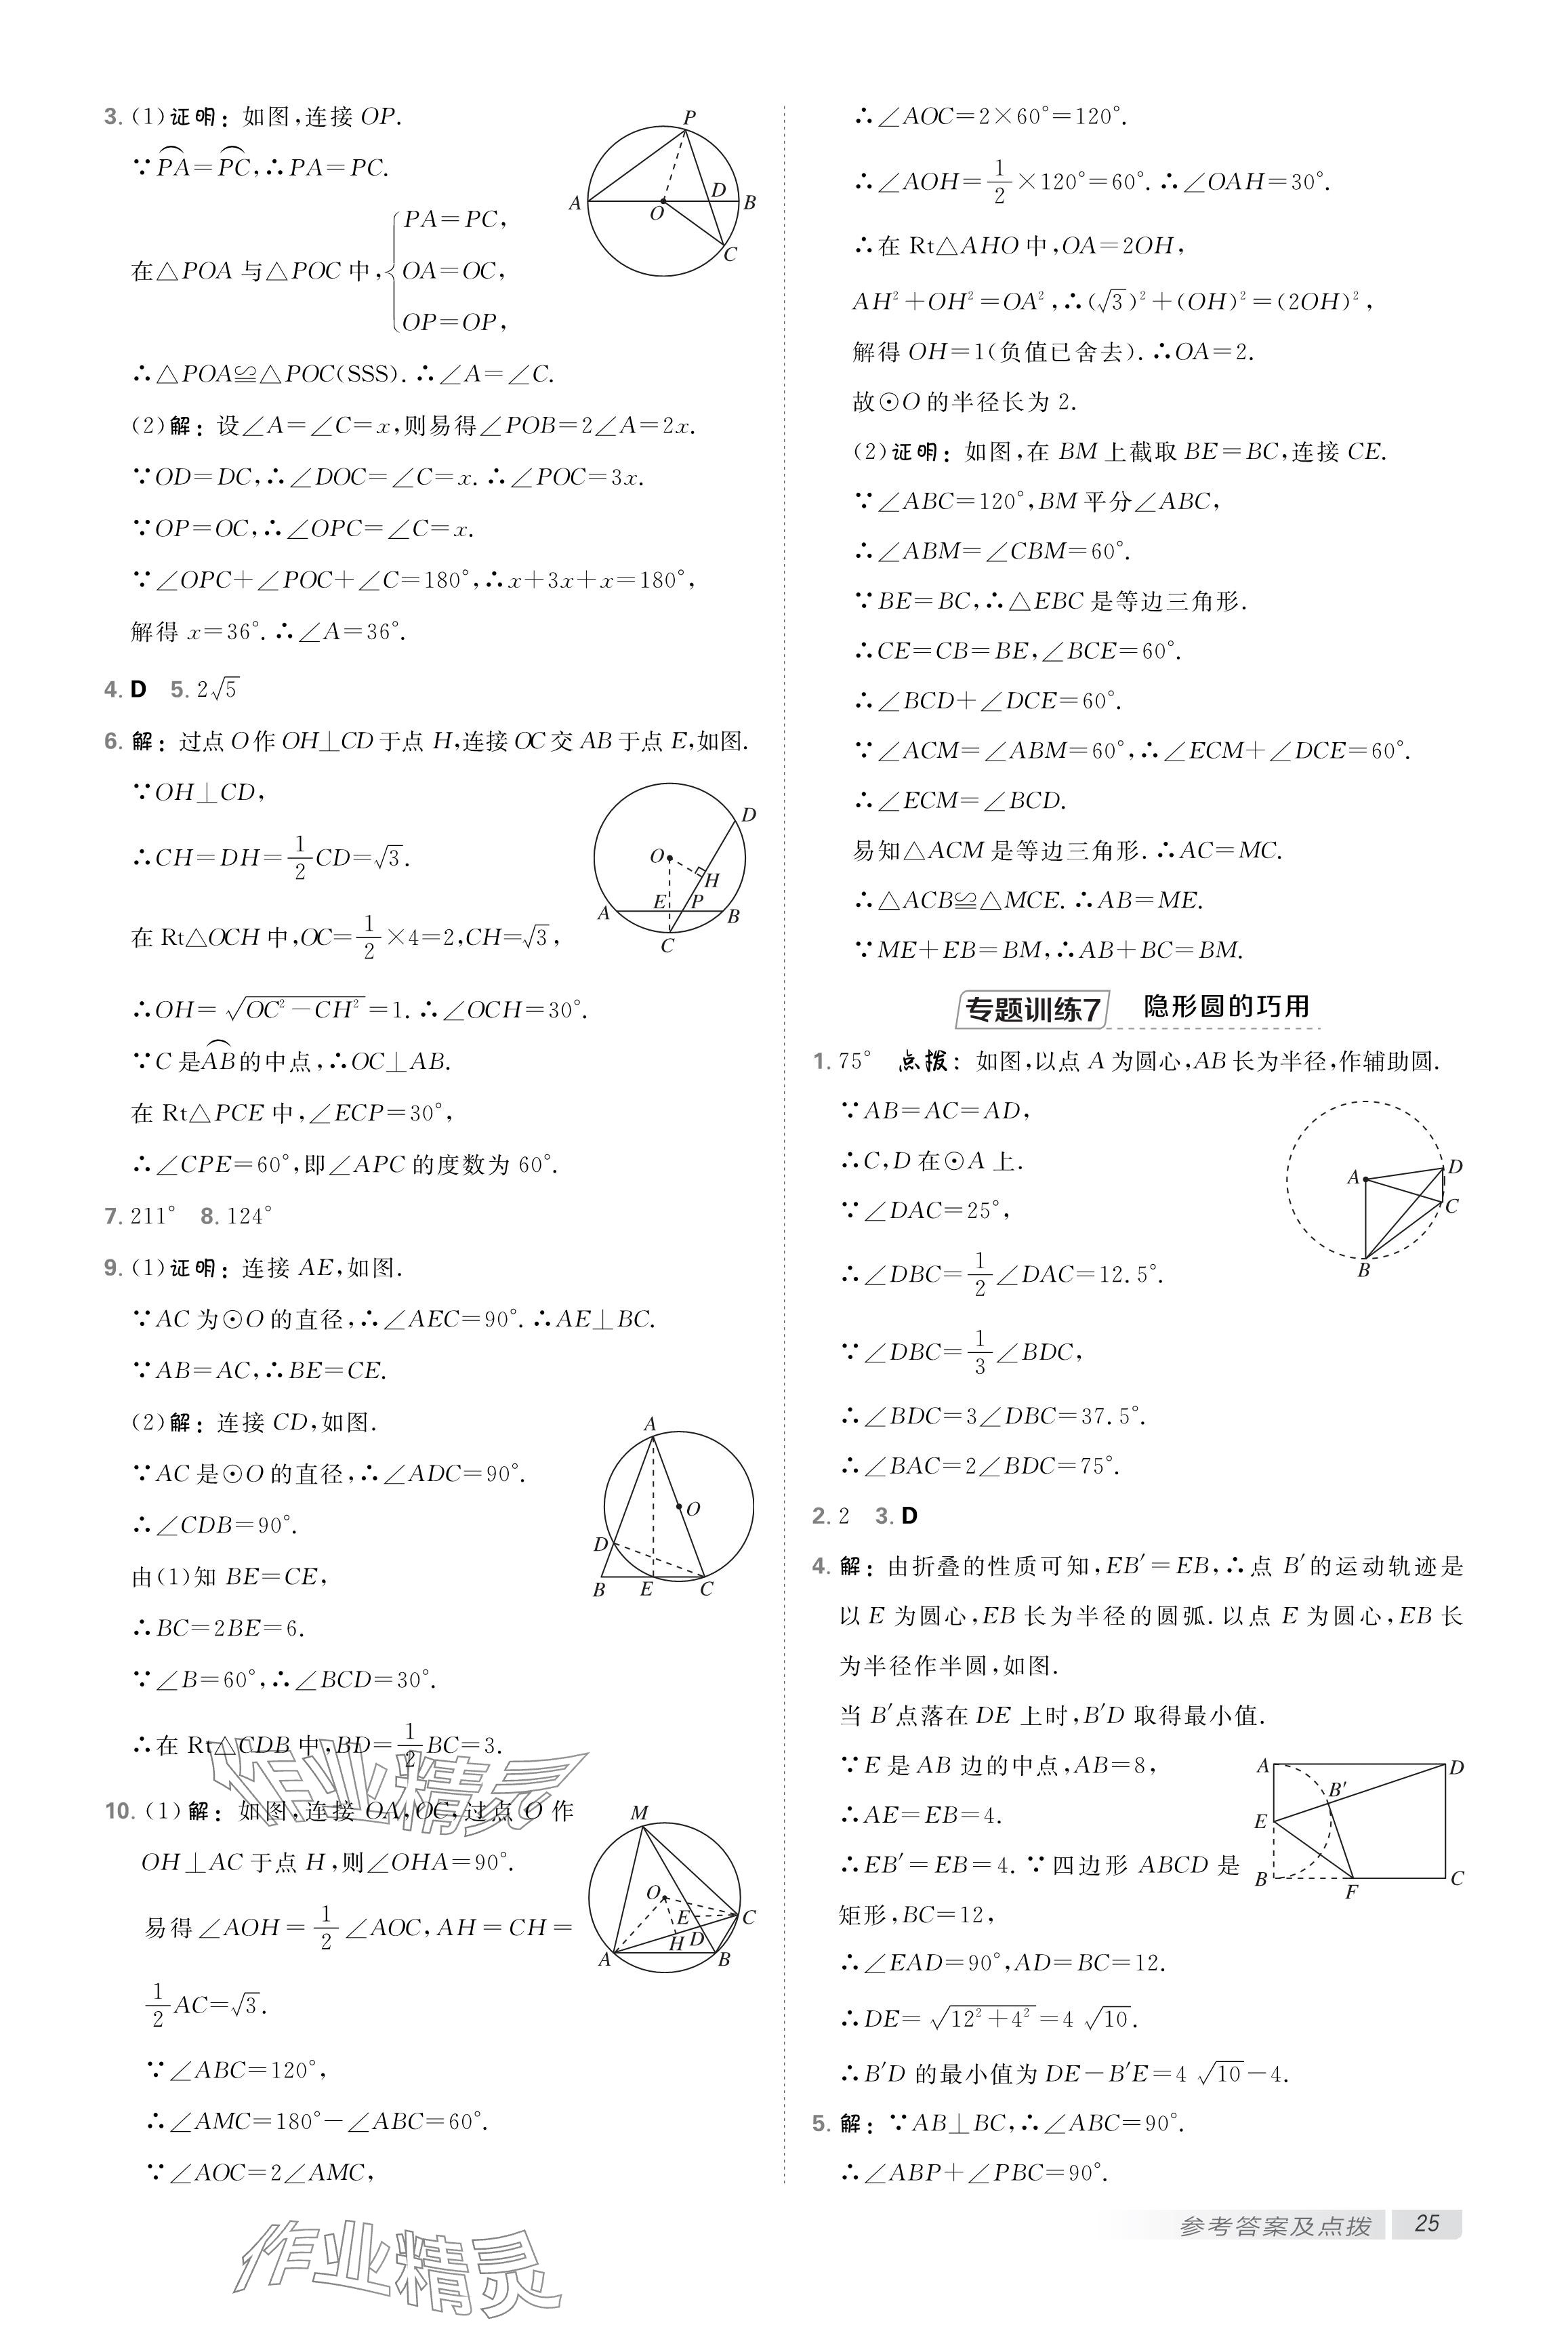 3. (1)证明：如图,连接 OP.
∵PA⌒=PC⌒,∴PA=PC.
在△POA 与△POC 中,{PA=PC,
OA=OC,
OP=OP,
∴△POA≌△POC(SSS).∴∠A=∠C.
(2)解：设∠A=∠C=x,则易得∠POB=2∠A=2x.
∵OD=DC,∴∠DOC=∠C=x.∴∠POC=3x.
∵OP=OC,∴∠OPC=∠C=x.
∵∠OPC+∠POC+∠C=180°,∴x+3x+x=180°,
解得 x=36°.∴∠A=36°.
P
A
O
D
B
C
4. D 5. 2√5
6. 解：过点 O 作 OH⊥CD 于点 H,连接 OC 交 AB 于点 E,如图.
∵OH⊥CD,
∴CH=DH=1/2CD=√3.
在 Rt△OCH 中,OC=1/2×4=2,CH=√3,
∴OH=√(OC²-CH²)=1.∴∠OCH=30°.
∵C 是AB⌒的中点,∴OC⊥AB.
在 Rt△PCE 中,∠ECP=30°,
∴∠CPE=60°,即∠APC 的度数为 60°.
D
O
H
E P
A
B
C
7. 211° 8. 124°
9. (1)证明：连接 AE,如图.
∵AC 为⊙O 的直径,∴∠AEC=90°.∴AE⊥BC.
∵AB=AC,∴BE=CE.
(2)解：连接 CD,如图.
∵AC 是⊙O 的直径,∴∠ADC=90°.
∴∠CDB=90°.
由(1)知 BE=CE,
∴BC=2BE=6.
∵∠B=60°,∴∠BCD=30°.
∴在 Rt△CDB 中,BD=1/2BC=3.
A
O
D
B E C
10. (1)解：如图,连接 OA,OC,过点 O 作
OH⊥AC 于点 H,则∠OHA=90°.
易得∠AOH=1/2∠AOC,AH=CH=
1/2AC=√3.
∵∠ABC=120°,
∴∠AMC=180°-∠ABC=60°.
∵∠AOC=2∠AMC,
M
O
E
C
H D
A
B
作业精灵
作业精灵
∴∠AOC=2×60°=120°.
∴∠AOH=1/2×120°=60°.∴∠OAH=30°.
∴在 Rt△AHO 中,OA=2OH,
AH²+OH²=OA²,∴(√3)²+(OH)²=(2OH)²,
解得 OH=1(负值已舍去).∴OA=2.
故⊙O 的半径长为 2.
(2)证明：如图,在 BM 上截取 BE=BC,连接 CE.
∵∠ABC=120°,BM 平分∠ABC,
∴∠ABM=∠CBM=60°.
∵BE=BC,∴△EBC 是等边三角形.
∴CE=CB=BE,∠BCE=60°.
∴∠BCD+∠DCE=60°.
∵∠ACM=∠ABM=60°,∴∠ECM+∠DCE=60°.
∴∠ECM=∠BCD.
易知△ACM 是等边三角形.∴AC=MC.
∴△ACB≌△MCE.∴AB=ME.
∵ME+EB=BM,∴AB+BC=BM.
专题训练7 隐形圆的巧用
1. 75° 点拨：如图,以点 A 为圆心,AB 长为半径,作辅助圆.
∵AB=AC=AD,
∴C,D 在⊙A 上.
∵∠DAC=25°,
∴∠DBC=1/2∠DAC=12.5°.
∵∠DBC=1/3∠BDC,
∴∠BDC=3∠DBC=37.5°.
∴∠BAC=2∠BDC=75°.
A
D
C
B
2. 2 3. D
4. 解：由折叠的性质可知,EB′=EB,∴点 B′的运动轨迹是
以 E 为圆心,EB 长为半径的圆弧.以点 E 为圆心,EB 长
为半径作半圆,如图.
当 B′点落在 DE 上时,B′D 取得最小值.
∵E 是 AB 边的中点,AB=8,
∴AE=EB=4.
∴EB′=EB=4.∵四边形 ABCD 是
矩形,BC=12,
∴∠EAD=90°,AD=BC=12.
∴DE=√(12²+4²)=4√10.
∴B′D 的最小值为 DE-B′E=4√10-4.
A
D
B′
E
B
F
C
5. 解：∵AB⊥BC,∴∠ABC=90°.
∴∠ABP+∠PBC=90°.
参考答案及点拨 25